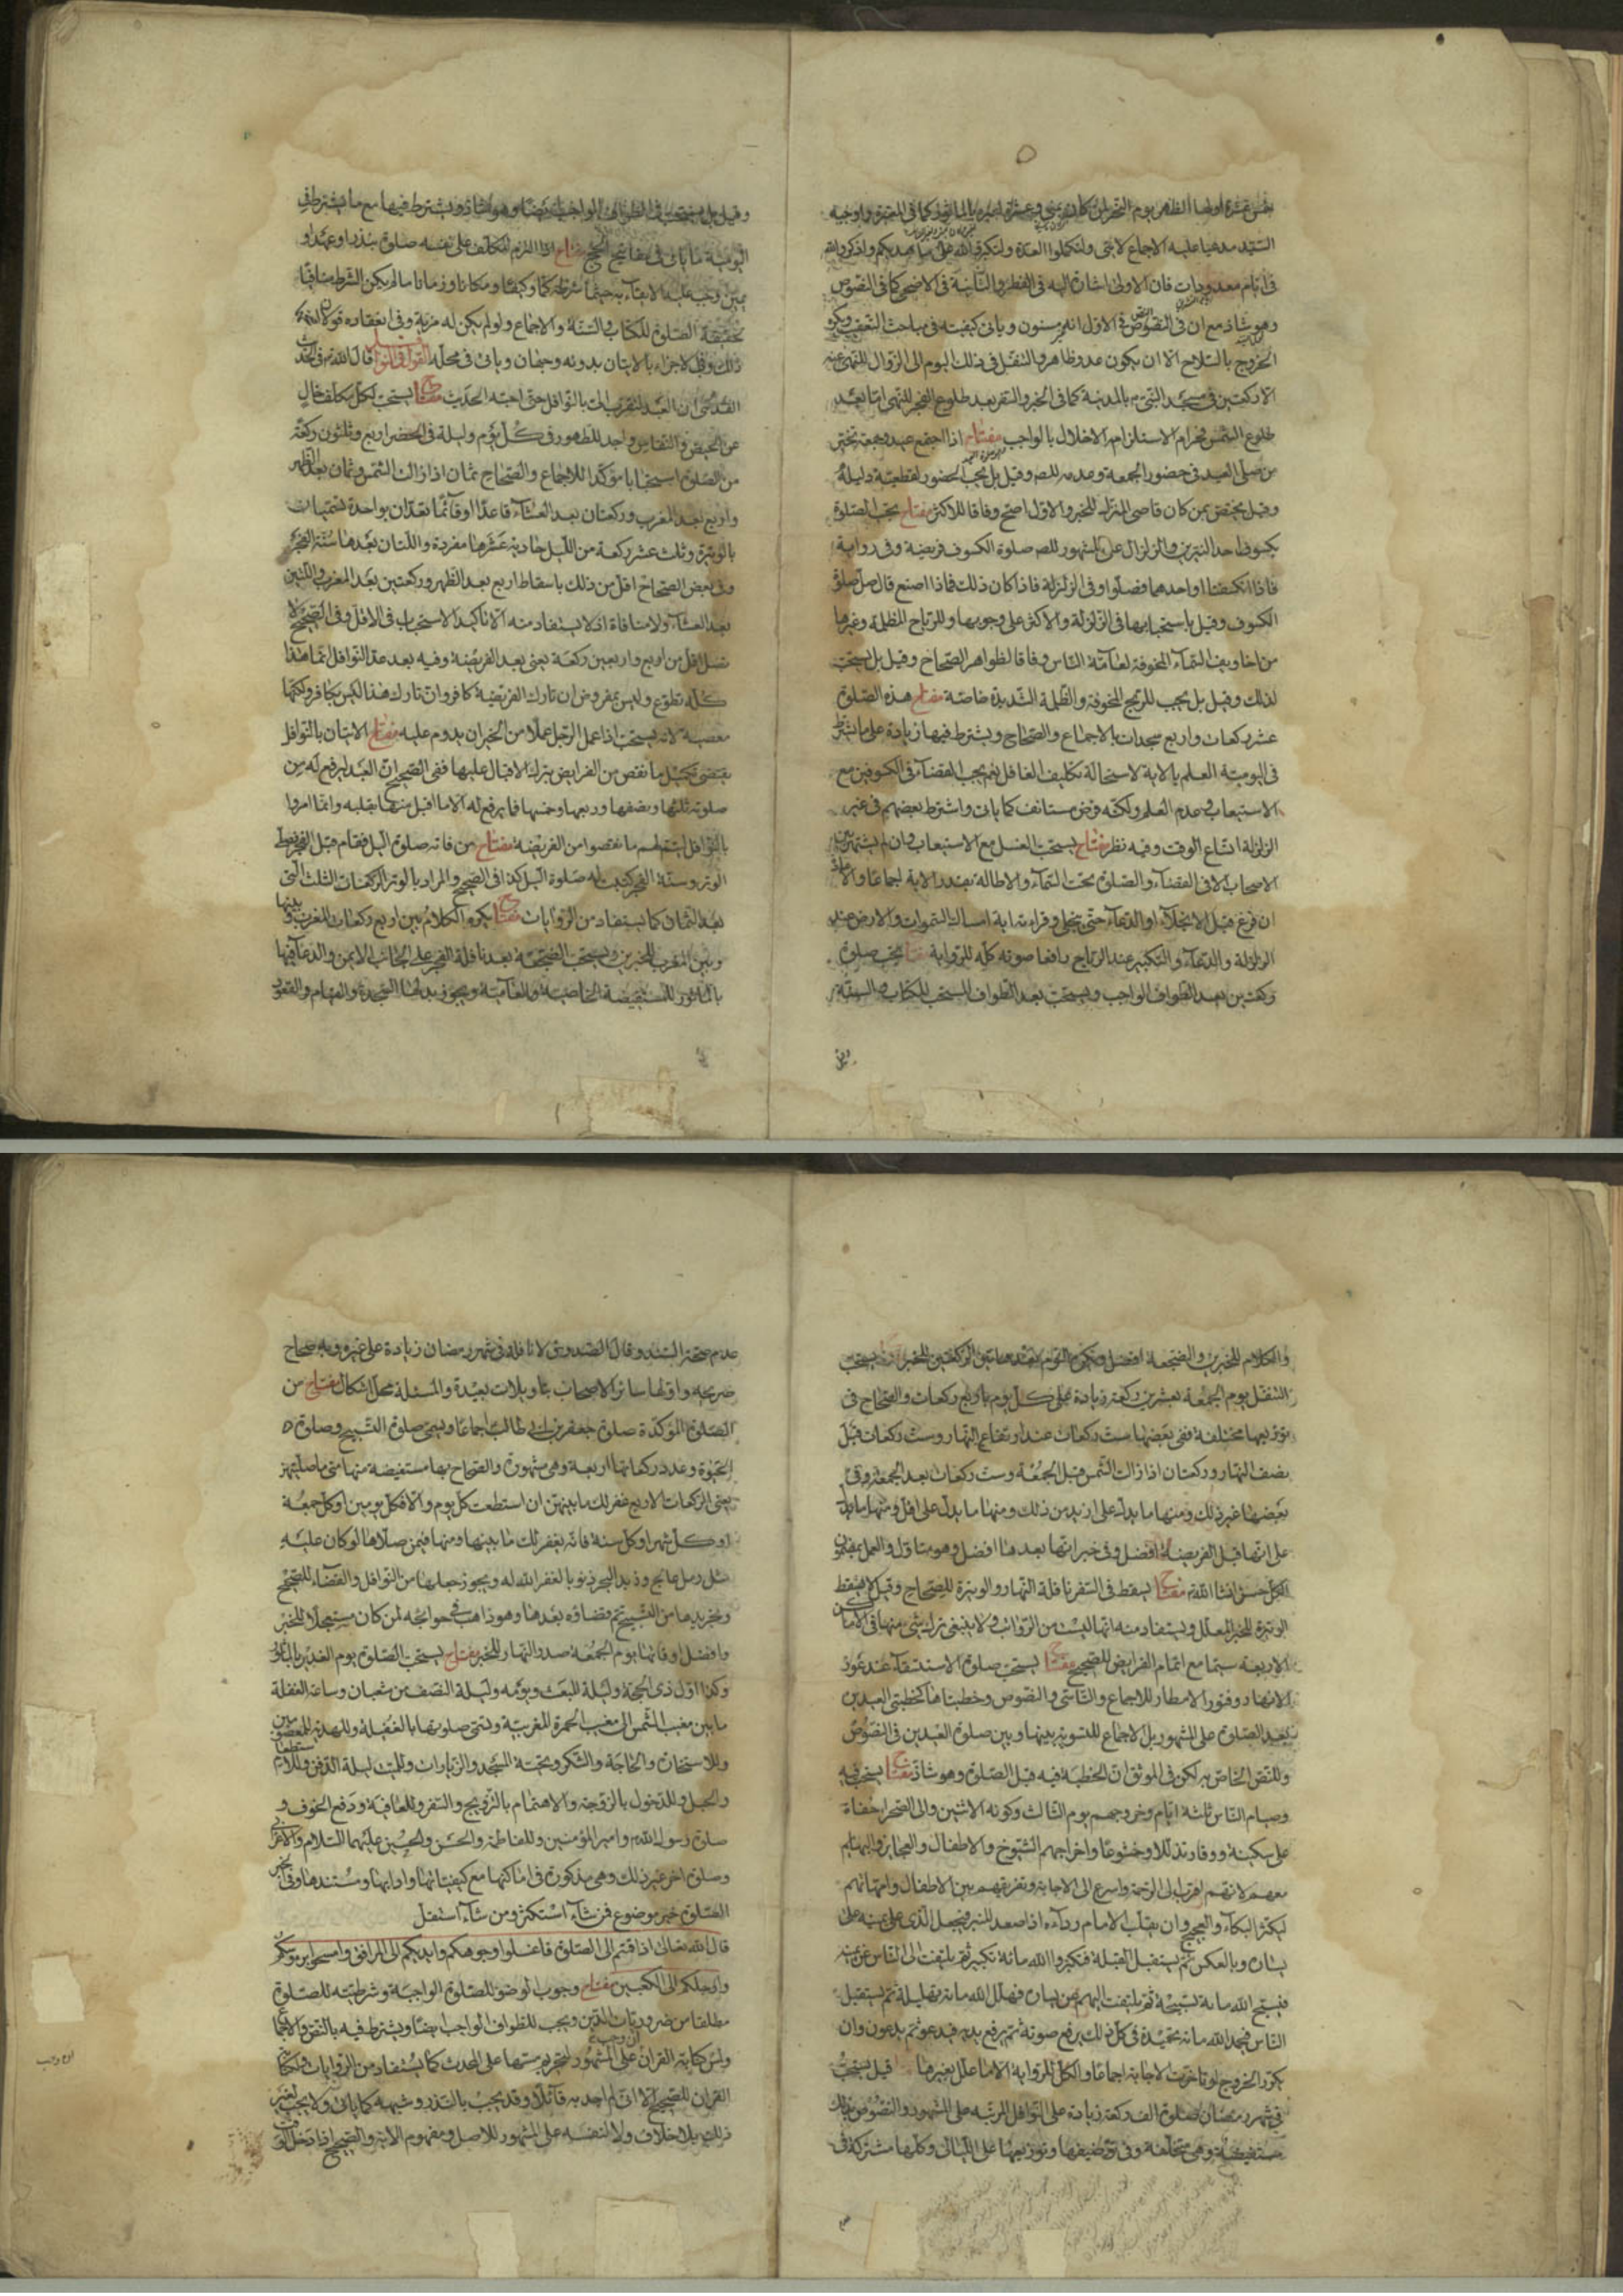 خمس عشرة اولها الظهر يوم النحر ان كان بمنى وعشرة لغيره بالماثور كما في المعتبرة واوجبه
السيد مدعيا عليه الاجماع لايتى ولتكملوا العدة ولتكبروا الله على ما هديكم واذكروا الله
في ايام معدودات فان الاولى اشارة اليه في الفطر والثانية في الاضحى كما في النصوص
وهو شاذ مع ان في النصوص في الاول انه مسنون وياتي كيفيته في مباحث التعقيب ويكره
الخروج بالسلاح الا ان يكون عدو ظاهر والتنفل في ذلك اليوم الى الزوال للنهي عنه
الا ركعتين في مسجد النبي ص بالمدينة كما في الخبر والسفر بعد طلوع الفجر للنهي اما بعد
طلوع الشمس فحرام لاستلزامه الاخلال بالواجب مفتاح اذا اجتمع عيد وجمعة تخير
من صلى العيد في حضور الجمعة وعدمه للصحاح وقيل بل يجب الحضور لقطعية دليله
وقيل يختص بمن كان قاصي المنزل للخبر والاول اصح وفاقا للاكثر مفتاح يجب الصلوة
بكسوف احد النيرين والزلزال على المشهور للصحاح صلوة الكسوف فريضة وفي رواية
فاذا انكسفتا او احدهما فصلوا وفي الزلزلة فاذا كان ذلك فماذا اصنع قال صل صلوة
الكسوف وقيل باستحبابها في الزلزلة والاكثر على وجوبها وللرياح المظلمة وغيرها
من اخاويف السماء المخوفة لعامة الناس وفاقا لظواهر الصحاح وقيل بل يستحب
لذلك وقيل بل يجب للريح المخوفة والظلمة الشديدة خاصة مفتاح هذه الصلوة
عشر ركعات واربع سجدات بالاجماع والصحاح ويشترط فيها زيادة على ما يشترط
في اليومية العلم بالاية لاستحالة تكليف الغافل نعم يجب القضاء في الكسوفين مع
الاستيعاب وعدم العلم ولكنه فرض مستانف كما ياتي واشترط بعضهم في غير
الزلزلة اتساع الوقت وفيه نظر مفتاح يستحب الغسل مع الاستيعاب وان لم يشتهر بين
الاصحاب الا في القضاء والصلوة تحت السماء والاطالة بقدر الاية اجماعا والاعادة
ان فرغ قبل الانجلاء او الدعاء حتى ينجلي وقراءة اية امساك السموات والارض عند
الزلزلة والدعاء والتكبير عند الرياح رافعا صوته كله للرواية مفتاح يجب صلوة
ركعتين بعد الطواف الواجب ويستحب بعد الطواف المستحب للكتاب والسنة
وقيل
وقيل بل يستحب في الطواف الواجب ايضا وهو شاذ ويشترط فيها مع ما يشترط في
اليومية ما ياتي في مفاتيح الحج مفتاح اذا التزم المكلف على نفسه صلوة بنذر او عهد او
يمين وجب عليه الايفاء به حيثما شرطه كما وكيفا ومكانا وزمانا ما لم يكن الشرط منافيا
لحقيقة الصلوة للكتاب والسنة والاجماع ولو لم يكن له مزية وفي انعقاده قولان
ذلك وفي الاجزاء بالاتيان بدونه وجهان وياتي في محله القول في النوافل قال الله في الحديث
القدسي ان العبد ليتقرب الى بالنوافل حتى احبه الحديث مفتاح يستحب لكل مكلف خال
عن الحيض والنفاس واجد للطهور في كل يوم وليلة في الحضر اربع وثلثون ركعة
من الصلوة استحبابا مؤكدا للاجماع والصحاح ثمان اذا زالت الشمس وثمان بعد الظهر
واربع بعد المغرب وركعتان بعد العشاء قاعدا او قائما تعدان بواحدة تسميان
بالوتيرة وثلث عشر ركعة من الليل حادية عشرها مفردة واللتان بعدها سنة الفجر
وفي بعض الصحاح اقل من ذلك باسقاط اربع بعد الظهر وركعتين بعد المغرب واللتين
بعد العشاء ولا منافاة اذ لا يستفاد منه الا تاكيد الاستحباب في الاقل وفي الصحيح لا
تصل اقل من اربع واربعين ركعة يعني بعد الفريضة وفيه بعد عد النوافل انما هذا
كله تطوع وليس بمفروض ان تارك الفريضة كافر وان تارك هذا ليس بكافر ولكنها
معصية لانه يستحب اذا عمل الرجل عملا من الخير ان يدوم عليه مفتاح الاتيان بالنوافل
يقتضي تكميل ما نقص من الفرايض بترك الاقبال عليها ففي الصحيح ان العبد ليرفع له من
صلوته ثلثها ونصفها وربعها وخمسها فما يرفع له الا ما اقبل منها بقلبه وانما امروا
بالنوافل ليتم لهم ما نقصوا من الفريضة مفتاح من فاته صلوة الليل فقام قبل الفجر فصلى
الوتر وسنة الفجر كتبت له صلوة الليل كذا في الصحيح والمراد بالوتر الركعات الثلث التي
بعد الثمان كما يستفاد من الروايات مفتاح يكره الكلام بين اربع ركعات المغرب وبينها
وبين المغرب للخبرين ويستحب الضجعة بعد نافلة الفجر على الجانب الايمن والدعاء فيها
بالماثور للمستفيضة الخاصية والعامية ويجوز بدلها السجدة والقيام والقعود
والكلام للخبرين والضجعة افضل ويكره النوم بعدها بين الركعتين للخبر مفتاح يستحب
التنفل يوم الجمعة بعشرين ركعة زيادة على كل يوم باربع ركعات والصحاح في
توزيعها مختلفة ففي بعضها ست ركعات عند ارتفاع النهار وست ركعات قبل
نصف النهار وركعتان اذا زالت الشمس قبل الجمعة وست ركعات بعد الجمعة وفي
بعضها غير ذلك ومنها ما يدل على ازيد من ذلك ومنها ما يدل على اقل ومنها ما يدل
على انها قبل الفريضة افضل وفي خبر انها بعدها افضل وهو متاول والعمل بمضمون
الكل حسن انشا الله مفتاح يسقط في السفر نافلة النهار والوتيرة للصحاح وقيل لا يسقط
الوتيرة للخبر المعلل ويستفاد منه انها ليست من الرواتب ولا ينبغي ترك شيء منها في الاماكن
الاربعة سيما مع اتمام الفرايض للصحيح مفتاح يستحب صلوة الاستسقاء عند غور
الانهار وفتور الامطار للاجماع والتاسي والنصوص وخطبتاها كخطبتي العيدين
بعد الصلوة على المشهور بل الاجماع للتسوية بينها وبين صلوة العيدين في النصوص
وللنص الخاص به لكن في الموثق ان الخطبة فيه قبل الصلوة وهو شاذ مفتاح يستحب فيه
وصيام الناس ثلثة ايام وخروجهم يوم الثالث وكونه الاثنين والى الصحرا حفاة
على سكينة ووقار تذللا وخشوعا واخراجهم الشيوخ والاطفال والعجايز والبهايم
معهم لانهم اقرب الى الرحمة واسرع الى الاجابة وتفريقهم بين الاطفال وامهاتهم
ليكثر البكاء والعجيج وان يقلب الامام رداءه اذا صعد المنبر فيجعل الذي على يمينه على
يساره وبالعكس ثم يستقبل القبلة فيكبر الله مائة تكبيرة ثم يلتفت الى الناس عن يمينه
فيسبح الله مائة تسبيحة ثم يلتفت اليهم عن يساره فيهلل الله مائة تهليلة ثم يستقبل
الناس فيحمد الله مائة تحميدة في كل ذلك يرفع صوته ثم يرفع يديه فيدعو ثم يدعون وان
يكرر الخروج لو تاخرت الاجابة اجماعا والكل للرواية الا ما علل بغيرها مفتاح قيل يستحب
في شهر رمضان صلوة الف ركعة زيادة على النوافل المرتبة على المشهور والنصوص بذلك
مستفيضة وهي مختلفة وفي توظيفها وتوزيعها على الليالي وكلها مشتركة في
عدم صحة السند وقال الصدوق لا نافلة في شهر رمضان زيادة على غيره وبه صحاح
صريحة واولها سائر الاصحاب بتاويلات بعيدة والمسئلة محل اشكال مفتاح من
الصلوة المؤكدة صلوة جعفر بن ابي طالب اجماعا ويسمى صلوة التسبيح وصلوة
الحبوة وعدد ركعاتها اربعة وهي مشهورة والصحاح بها مستفيضة منها متى ما صليتهن
يعني الركعات الاربع غفر لك ما بينهن ان استطعت كل يوم والا فكل يومين او كل جمعة
او كل شهر او كل سنة فانه يغفر لك ما بينها ومنها فيمن صلاها لو كان عليه
مثل رمل عالج وزبد البحر ذنوبا لغفر الله له ويجوز جعلها من النوافل والقضاء للصحيح
وتجريدها من التسبيح ثم قضاؤه بعدها وهو ذاهب في حوائجه لمن كان مستعجلا للخبر
وافضل اوقاتها يوم الجمعة صدر النهار للخبر مفتاح يستحب الصلوة يوم الغدير بالماثور
وكذا اول ذي الحجة وليلة المبعث ويومه وليلة النصف من شعبان وساعة الغفلة
ما بين مغيب الشمس الى مغيب الحمرة المغربية وتسمى صلوتها بالغفيلة وللهدية للمعصومين
وللاستخارة والحاجة والشكر وتحية المسجد والزيارات وللميت ليلة الدفن وللاستطعام
والحبل وللدخول بالزوجة والاهتمام بالتزويج والسفر وللعافية ودفع الخوف و
صلوة رسول الله ص وامير المؤمنين وللفاطمة والحسن والحسين عليهما السلام والاعرابي
وصلوة اخر غير ذلك وهي مذكورة في اماكنها مع كيفياتها وادابها ومستندها وفي الخبر
الصلوة خير موضوع فمن شاء استكثر ومن شاء استقل
قال الله تعالى اذا قمتم الى الصلوة فاغسلوا وجوهكم وايديكم الى المرافق وامسحوا برؤسكم
وارجلكم الى الكعبين مفتاح وجوب الوضوء للصلوة الواجبة وشرطيته للصلوة
مطلقا من ضروريات الدين ويجب للطواف الواجب ايضا ويشترط فيه بالنص والاجماع
ولمس كتابة القران ان وجب على المشهور لتحريم مسها على المحدث كما يستفاد من الروايات
القران للصحيح الا اني لم اجد به قائلا وقد يجب بالنذر وشبهه كما ياتي ولا يجب لغير
ذلك بلا خلاف ولا لنفسه على المشهور للاصل ومفهوم الاية والصحيح اذا دخل الوقت